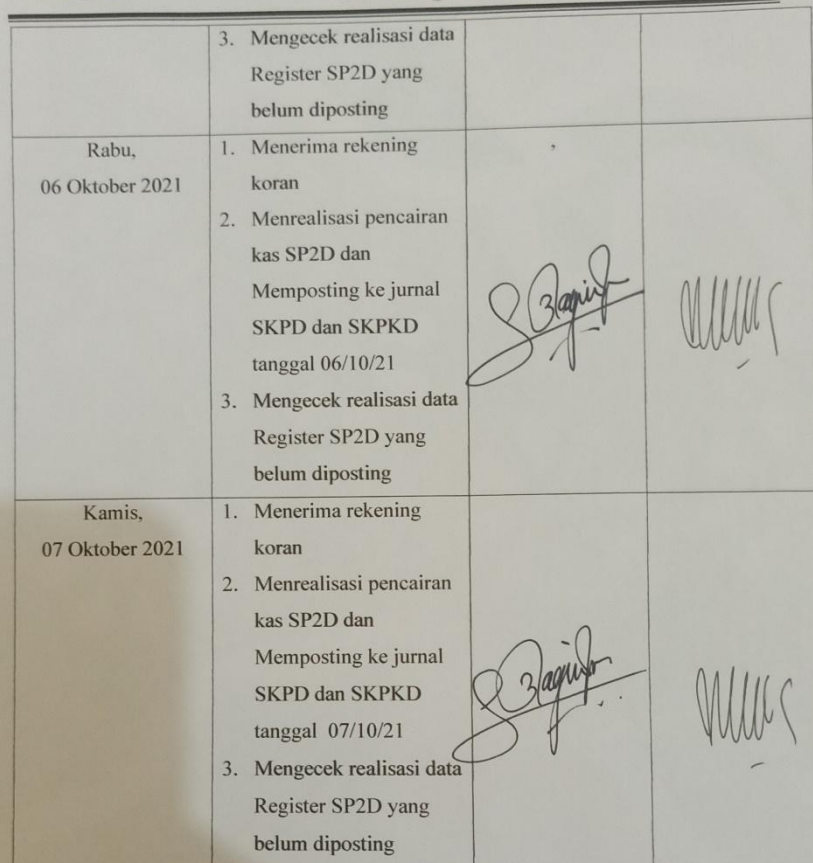 3. Mengecek realisasi data
Register SP2D yang
belum diposting
Rabu,
06 Oktober 2021
1. Menerima rekening
koran
2. Menrealisasi pencairan
kas SP2D dan
Memposting ke jurnal
SKPD dan SKPKD
tanggal 06/10/21
3. Mengecek realisasi data
Register SP2D yang
belum diposting
Kamis,
07 Oktober 2021
1. Menerima rekening
koran
2. Menrealisasi pencairan
kas SP2D dan
Memposting ke jurnal
SKPD dan SKPKD
tanggal 07/10/21
3. Mengecek realisasi data
Register SP2D yang
belum diposting